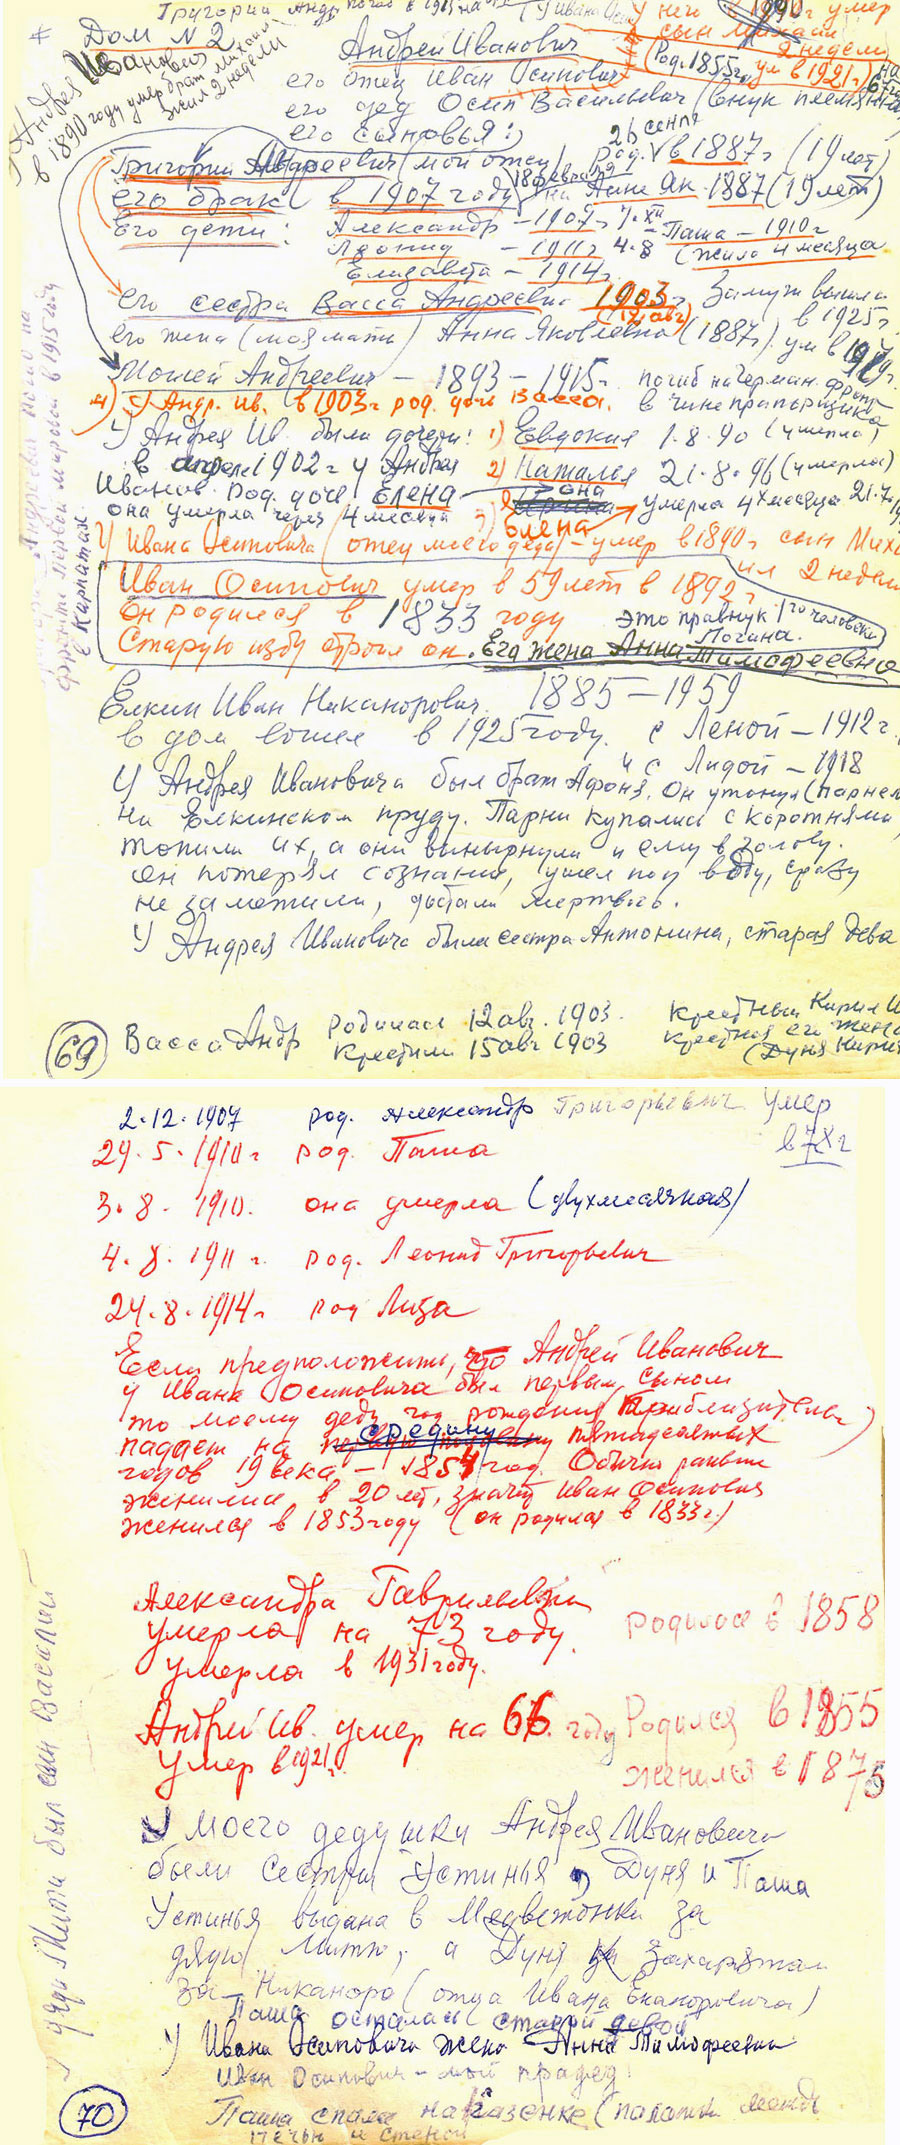 Дом N 2
Андрей Иванович
У него в 1890 г умер
сын Михаил
2 недели
(Род. 1855 г. ум в 1921 г.)
его отец Иван Осипович
его дед Осип Васильевич (внук
его сыновья:)
в 1890 году умер брат Михаил
жил 2 недели
26 сентя
Григорий Андреевич (мой отец) род. в 1887 г (19 лет)
его брак (в 1907 году 18 февраля на Анне Як. 1887 (19 лет)
Его дети: Александр - 1907 г. 7.XII
Паша - 1910 г
Леонид - 1911 г 4.8
(жила 4 месяца
Елизавета - 1914 г.
его сестра Васса Андреевна 1903 г. Замуж вышла
(12 авг)
в 1925 г
его жена (моя мать) Анна Яковлевна (1887 г) ум в
Мосей Андреевич - 1893 - 1915 г. погиб на герман. фронте
в чине прапорщика
4) У Андр. Ив. в 1903 г род. дочь Васса.
У Андрея Ив. были дочери: 1) Евдокия 1.8.90 (умерла)
в апреле 1902 г у Андрея
2) Наталья 21.8.96 (умерла)
Иванов. род. дочь Елена
она умерла через 4 месяца
3) Елена
она умерла 4х месяца 21.7.
У Ивана Осиповича (отец моего деда) - умер в 1890 г сын Миха
жил 2 недели
Иван Осипович умер в 59 лет в 1892 г
Он родился в 1833 году это правнук 1го человека
Логина.
Старую избу строил он. Его жена Анна Тимофеевна
фронте первой мировой в 1915 году
в Карпатах.
Елкин Иван Никанорович. 1885 - 1959
в дом вошел в 1925 году. с Леной - 1912 г.
и с Лидой - 1918
У Андрея Ивановича был брат Афоня. Он утонул (парнем
на Елкинском пруду. Парни купались с коротнями,
топили их, а они вынырнули и ему в голову.
он потерял сознание, ушел под воду, сразу
не заметили, достали мертвого.
У Андрея Ивановича была сестра Антонина, старая дева
69
Васса Андр Родилась 12 авг. 1903.
Крестили 15 авг 1903
Крестный Кирил И
Крестная его жена
(Дуня Кири
2.12.1907 род. Александр Григорьевич умер
29.5.1910 г род. Паша
3.8.1910. она умерла (двухмесячная)
4.8.1911 г. род. Леонид Григорьевич
24.8.1914 г род Лиза
Если предположить, что Андрей Иванович
у Ивана Осиповича был первым сыном
то моему деду год рождения приблизительно
падает на средину пятидесятых
годов 19 века - 1854 год. Обычно раньше
женились в 20 лет, значит Иван Осипович
женился в 1853 году (он родился в 1833 г.)
Александра Гавриловна
умерла на 73 году. родилась в 1858
умерла в 1931 году.
Андрей Ив. умер на 66 году Родился в 1855
умер в 1921 г.
женился в 1875
У дяди Мити был сын Василий
У моего дедушки Андрея Ивановича
были сестры Устинья, Дуня и Паша
Устинья выдана в Медветонки за
дядю Митю, а Дуня за
за Никанора (отца Ивана Еканоровича)
Паша осталась старой девой
У Ивана Осиповича жена - Анна Тимофеевна
Иван Осипович - мой прадед
70
Паша спала на казенке (полати между
печью и стеной